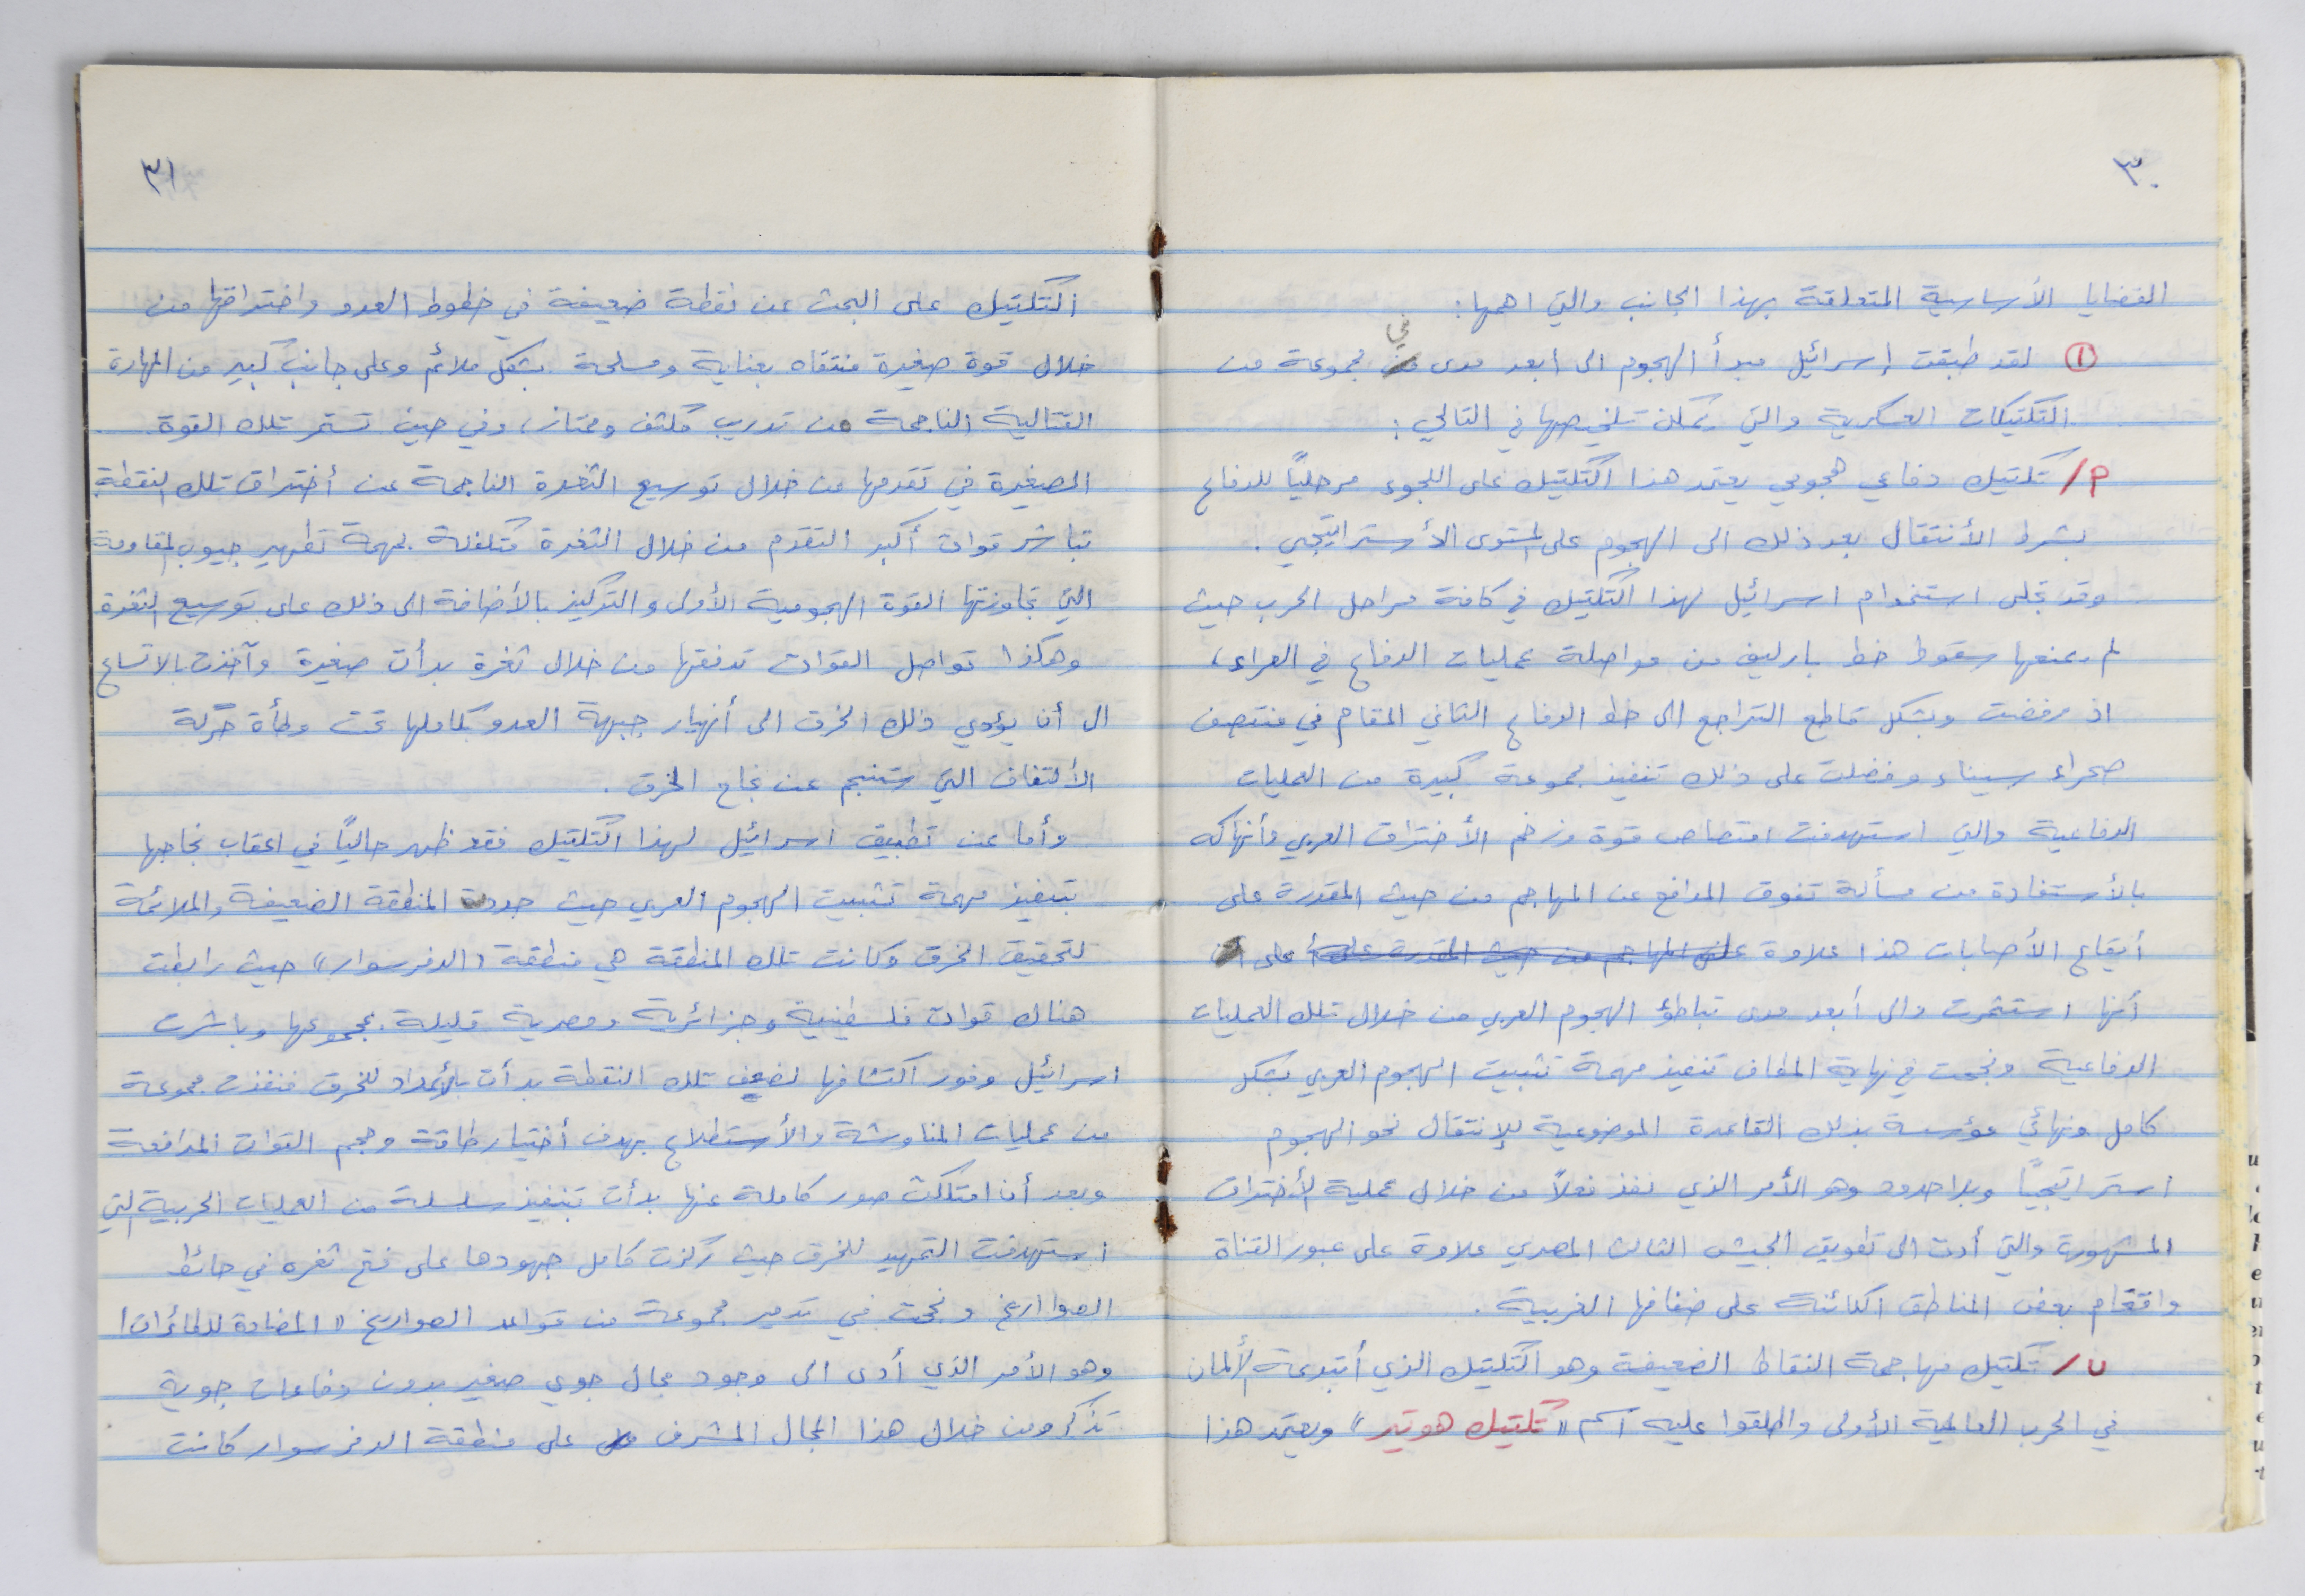 ٣٠
القضايا الأساسية المتعلقة بهذا الجانب والتي اهمها :
① لقد طبقت إسرائيل مبدأ الهجوم الى ابعد مدى في مجموعة من
التكتيكات العسكرية والتي يمكن تلخيصها في التالي :
أ/ تكتيك دفاعي هجومي يعتمد هذا التكتيك على اللجوء مرحلياً للدفاع
بشرط الأنتقال بعد ذلك الى الهجوم على المستوى الأستراتيجي .
وقد تجلى استخدام اسرائيل لهذا التكتيك في كافة مراحل الحرب حيث
لم يمنعها سقوط خط بارليف من مواصلة عمليات الدفاع في العراء ،
اذ رفضت وبشكل قاطع التراجع الى خط الدفاع الثاني المقام في منتصف
صحراء سيناء وفضلت على ذلك تنفيذ مجموعة كبيرة من العمليات
الدفاعية والتي استهدفت امتصاص قوة وزخم الأختراق العربي وأنهاكه
بالأستفادة من مسألة تفوق المدافع عن المهاجم من حيث المقدرة على
أيقاع الأصابات هذا علاوة على المهاجم من حيث المقدرة على على
أنها استثمرت والى أبعد مدى تباطؤ الهجوم العربي من خلال تلك العمليات
الدفاعية ونجحت في نهاية المطاف تنفيذ مهمة تثبيت الهجوم العربي بشكل
كامل ونهائي مؤسسة بذلك القاعدة الموضوعية للإنتقال نحو الهجوم
استراتيجياً وبلا حدود وهو الأمر الذي نفذ فعلاً من خلال عملية الأختراق
المشهورة والتي أدت الى تطويق الجيش الثالث المصري علاوة على عبور القناة
واقتحام بعض المناطق الكائنة على ضفافها الغربية .
ب/ تكتيك مهاجمة النقاط الضعيفة وهو التكتيك الذي أبتدعة الألمان
في الحرب العالمية الأولى واطلقوا عليه اسم " تكتيك هوتير " ويعتمد هذا
٣١
التكتيك على البحث عن نقطة ضعيفة في خطوط العدو واختراقها من
خلال قوة صغيرة منتقاه بعناية ومسلحة بشكل ملائم وعلى جانب كبير من المهارة
القتالية الناجمة من تدريب مكثف وممتاز ، وفي حين تستمر تلك القوة
الصغيرة في تقدمها من خلال توسيع الثغرة الناجمة عن أختراق تلك النقطة
تباشر قوات أكبر التقدم من خلال الثغرة متكفلة بمهمة تطهير جيوب المقاومة
التي تجاوزتها القوة الهجومية الأولى والتركيز بالأضافة الى ذلك على توسيع الثغرة
وهكذا تواصل القوات تدفقها من خلال ثغرة بدأت صغيرة وآخذت بالاتساع
الى أن يؤدي ذلك الخرق الى أنهيار جبهة العدو بكاملها تحت وطأة حركة
الألتفاف التي ستنجم عن نجاح الخرق .
وأما عن تطبيق اسرائيل لهذا التكتيك فقد ظهر جالياً في اعقاب نجاحها
بتنفيذ مهمة تثبيت الهجوم العربي حيث حددت المنطقة الضعيفة والملائمة
لتحقيق الخرق وكانت تلك المنطقة هي منطقة " الدفرسوار " حيث رابطت
هناك قوات فلسطينية وجزائرية ومصرية قليلة بمجموعها وباشرت
اسرائيل وفور اكتشافها لضعف تلك النقطة بدأت بالأعداد للخرق فنفذت مجموعة
من عمليات المناوشة والأستطلاع بهدف أختبار طاقة وحجم القوات المدافعة
وبعد أن امتلكت صور كاملة عنها بدأت بتنفيذ سلسلة من العمليات الحربية التي
استهدفت التمهيد للخرق حيث ركزت كامل جهودها على فتح ثغره في حائط
الصواريخ ونجحت في تدمير مجموعة من قواعد الصواريخ " المضادة للطائرات "
وهو الأمر الذي أدى الى وجود مجال جوي صغير بدون دفاعات جوية
تذكر ومن خلال هذا المجال المشرف على منطقة الدفرسوار كانت